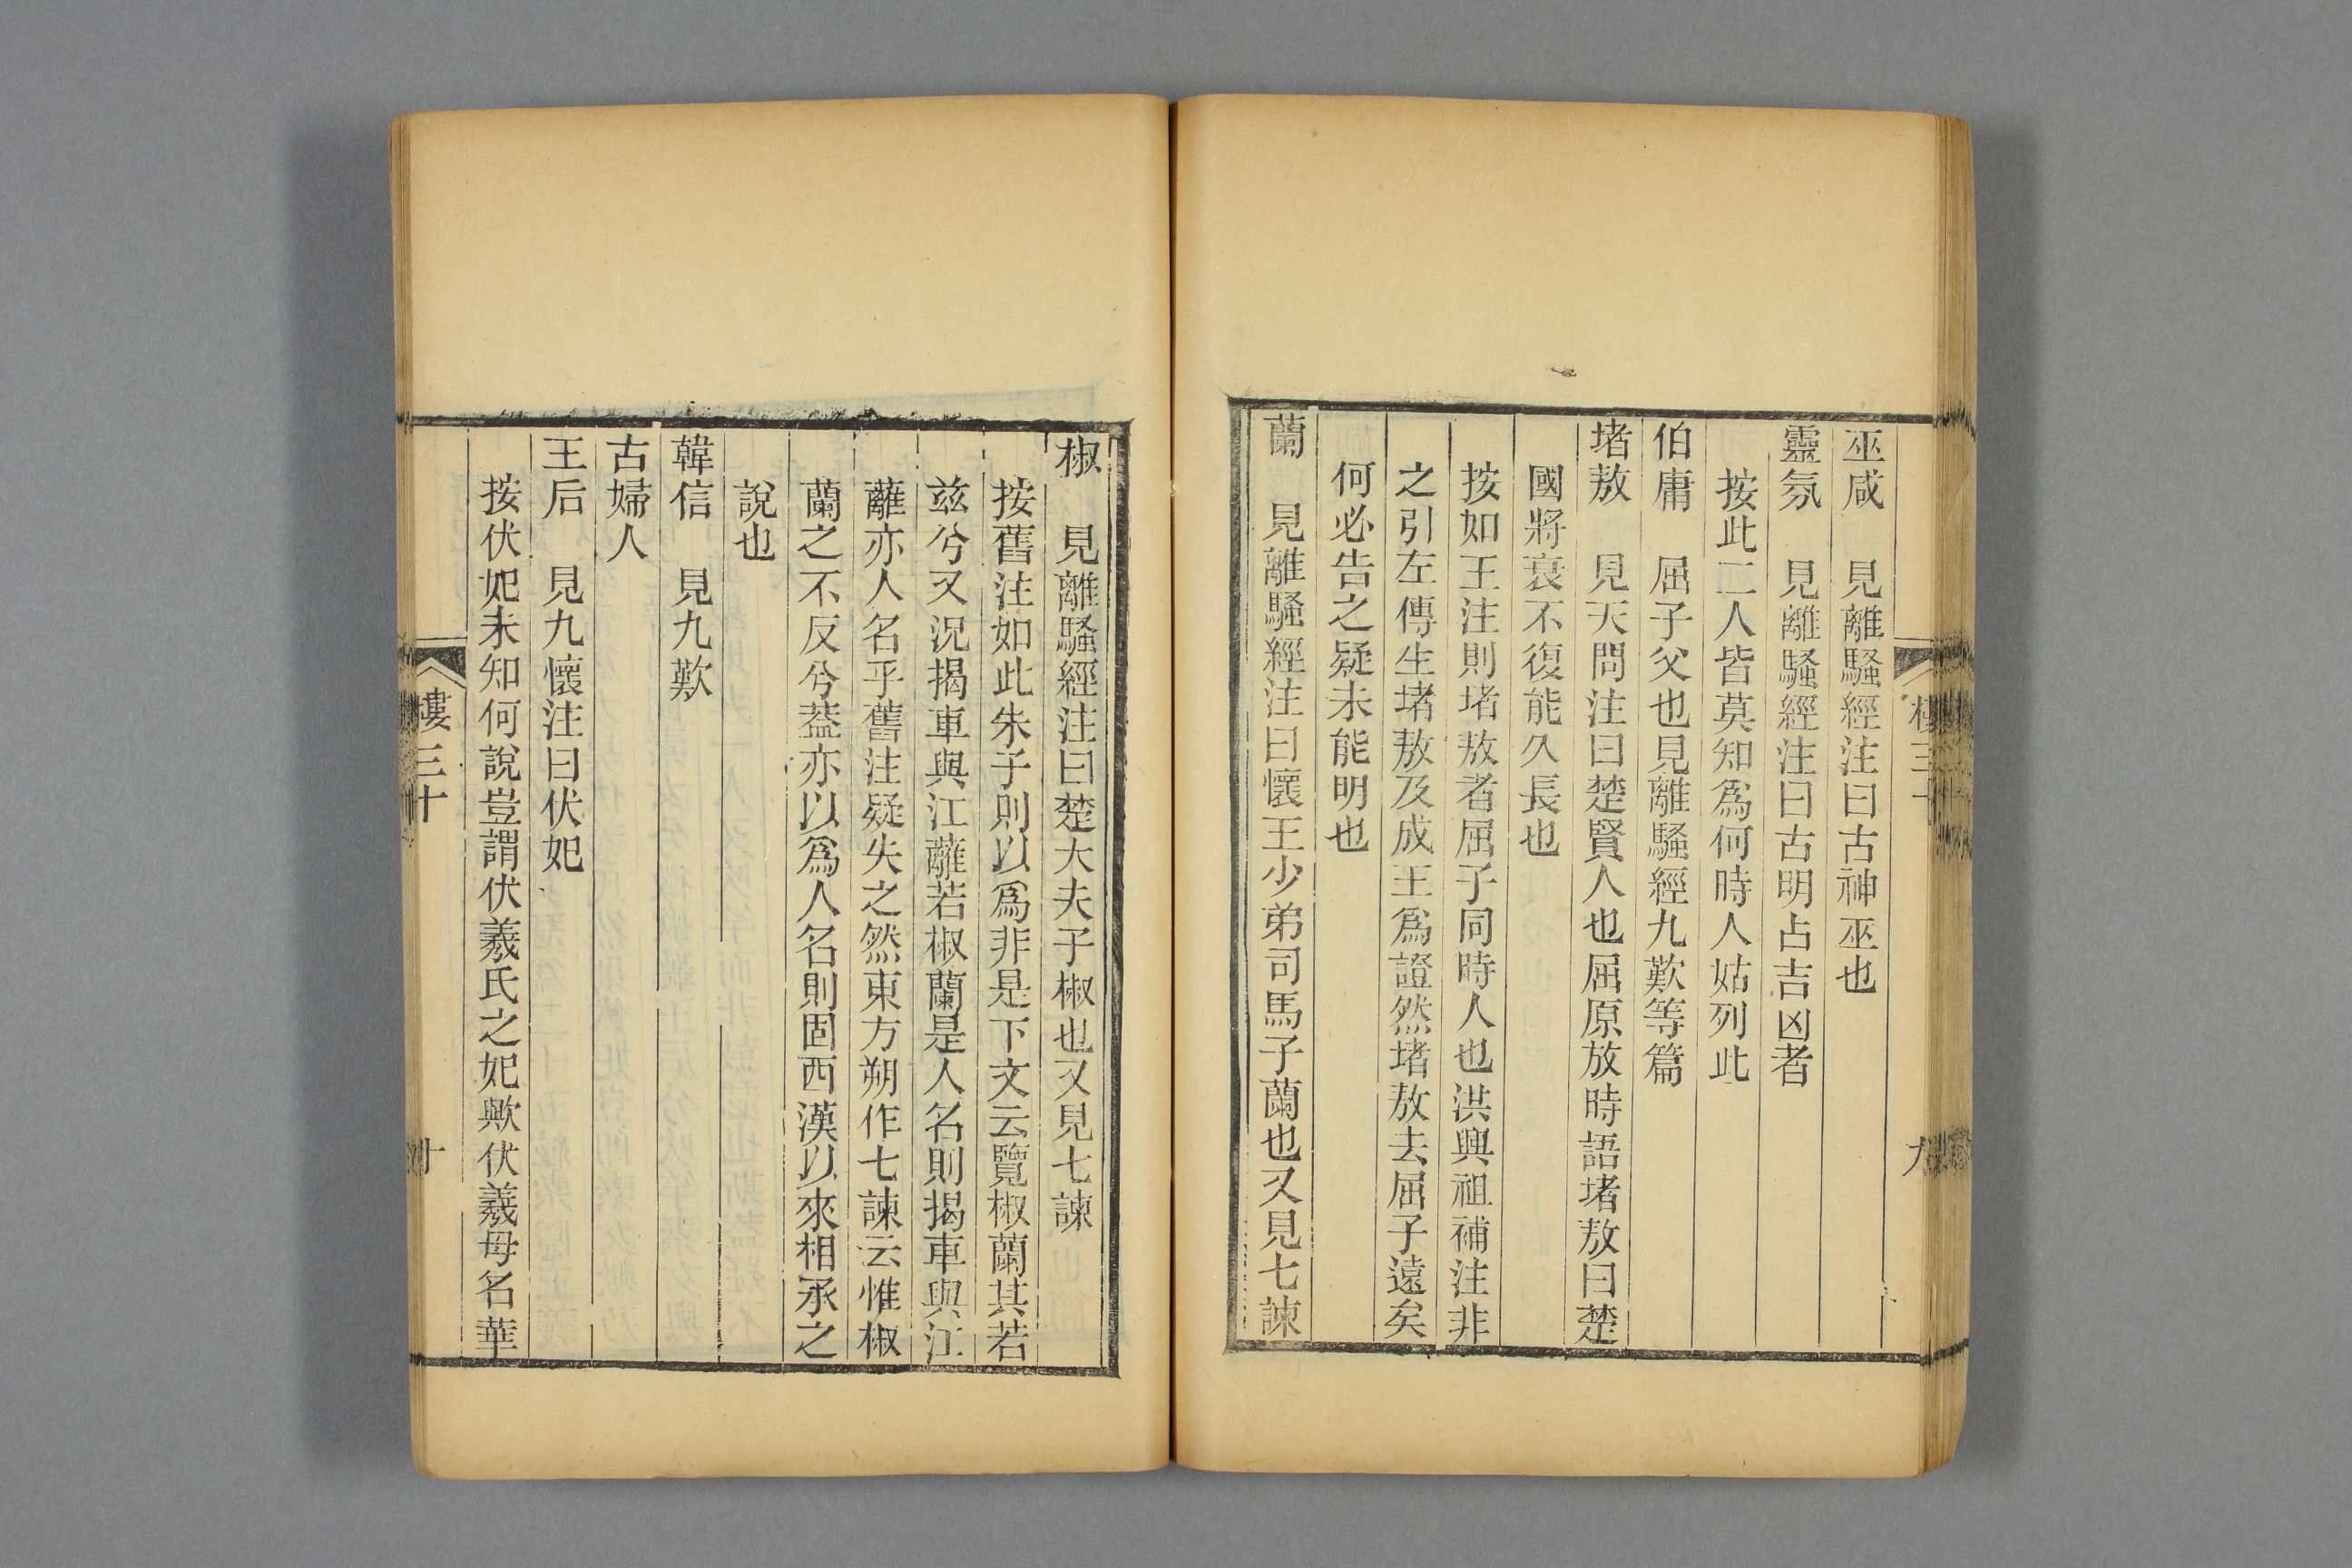 巫咸　見離騷經注曰古神巫也
靈氛　見離騷經注曰古明占吉凶者
按此二人皆莫知爲何時人姑列此
伯庸　屈子父也見離騷經九歎等篇
堵敖　見天問注曰楚賢人也屈原放時語堵敖曰楚
國將衰不復能久長也
按如王注則堵敖者屈子同時人也洪興祖補注非
之引左傳生堵敖及成王爲證然堵敖去屈子遠矣
何必告之疑未能明也
蘭　見離騷經注曰懷王少弟司馬子蘭也又見七諫
椒　見離騷經注曰楚大夫子椒也又見七諫
按舊注如此朱子則以爲非是下文云覽椒蘭其若
兹兮又況揭車與江蘺若椒蘭是人名則揭車與江
蘺亦人名乎舊注疑失之然東方朔作七諫云惟椒
蘭之不反兮葢亦以爲人名則固西漢以來相承之
說也
韓信　見九歎
古婦人
王后　見九懷注曰伏妃
按伏妃未知何說豈謂伏羲氏之妃歟伏羲母名華
樓三十
十